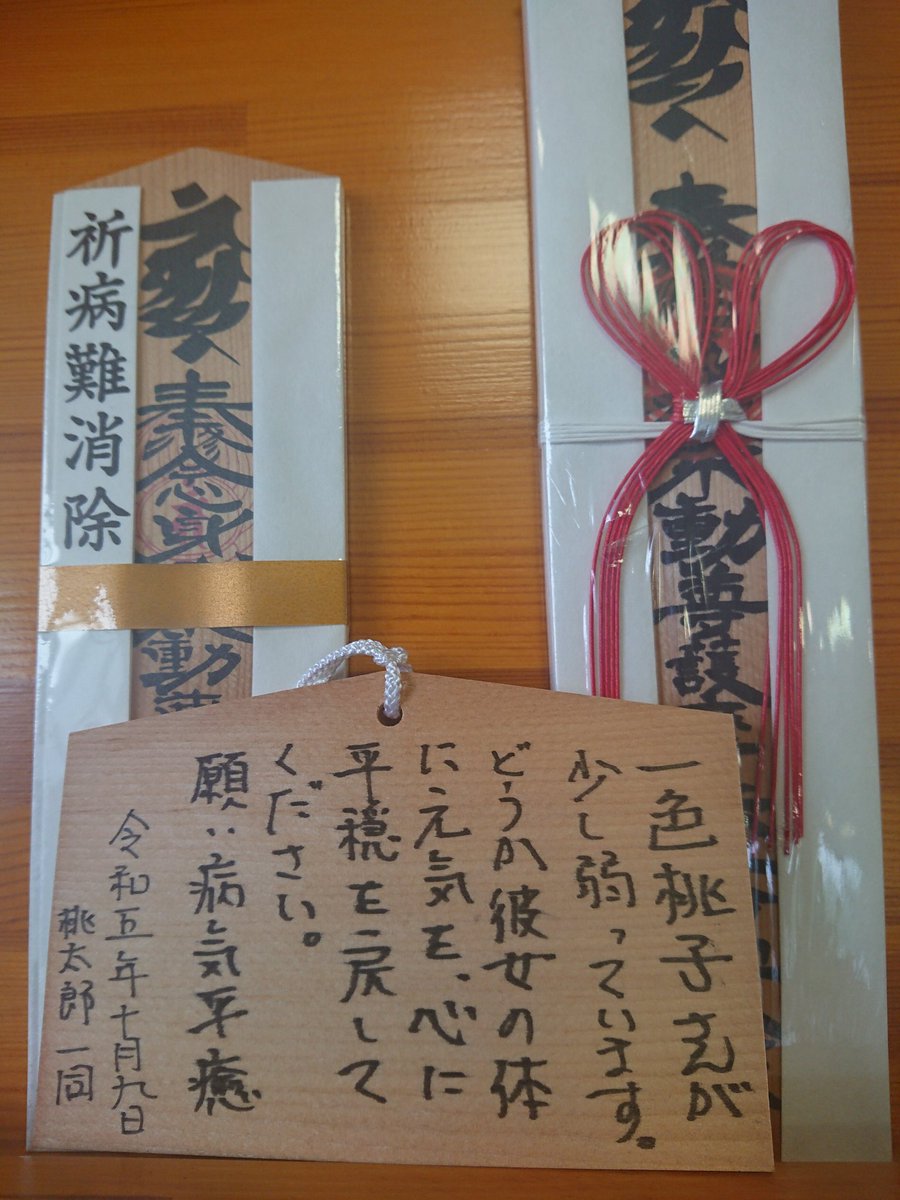 祈病難消除
奉修念身
動
奉
不動尊護
一色桃子さんが
少し弱っています。
どうか彼女の体
に元気を、心に
平穏を戻して
ください。
願い病気平癒
令和五年十月九日
桃太郎一同